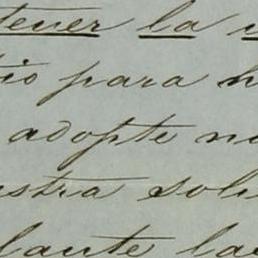 tener la
tio para h
adopte no
stra soli
lante la